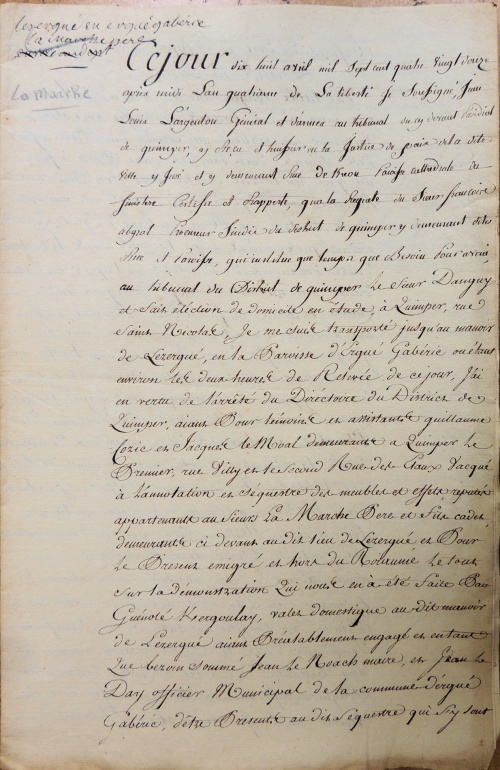 Lezergué en ergué gabéric
La Marche père
La Marche
Cejour dix huit avril mil Sept cent quatre vingt douze
après midi L'an quatrieme de La liberté Je Soussigné, Jean
Louis L'argenton Général et d'armes au tribunal cy devant
de quimper, y Reçu et huissier en la Justice de paix et la dite
ville y Juré et y demeurant Rue Paroisse cathédrale du
finistère Certifie et Rapporte, que a la Requête du Sieur francois
abgral Procureur Sindic du district de quimper y demeurant dites
Rue et Paroisse, qui institue que temps que Besoin Pour avoué
au tribunal du District de quimper Le Sieur Danguy
et fait élection de domicile en Son étude, à Quimper, rue
Saint Nicolas, Je me suis transporté jusqu'au manoir
de Lezergué, en la Paroisse d'Ergué Gabéric où étant
environ les deux heures de Relevée de ce jour, J'ai
en vertu de l'arrêté du Directoire du District de
Quimper, aiant Pour témoins et assistants guillaume
Cozic et Jacques le Moal demeurants a Quimper le
Premier, rue Vily et le Second Rue des Eaux Vaqué
à l'annotation et séquestre des meubles et effets réputés
appartenants au Sieurs La Marche Pere et fils cadet,
demeurants ci devant au dit lieu de Lezergué et Pour
le Present emigré et hors du Royaume le tout
Sur la démonstration Qui nous en a été faite Par
Guénolé Kergoulay, valet domestique au dit manoir
de Lezergué aiant Préalablement engagé et entant
Que besoin Sommé Jean le Noach maire, et Jean Le
Day officier Municipal de la commune d'ergué
Gabéric, d'être Presents au dit Sequestre qui s'y sont